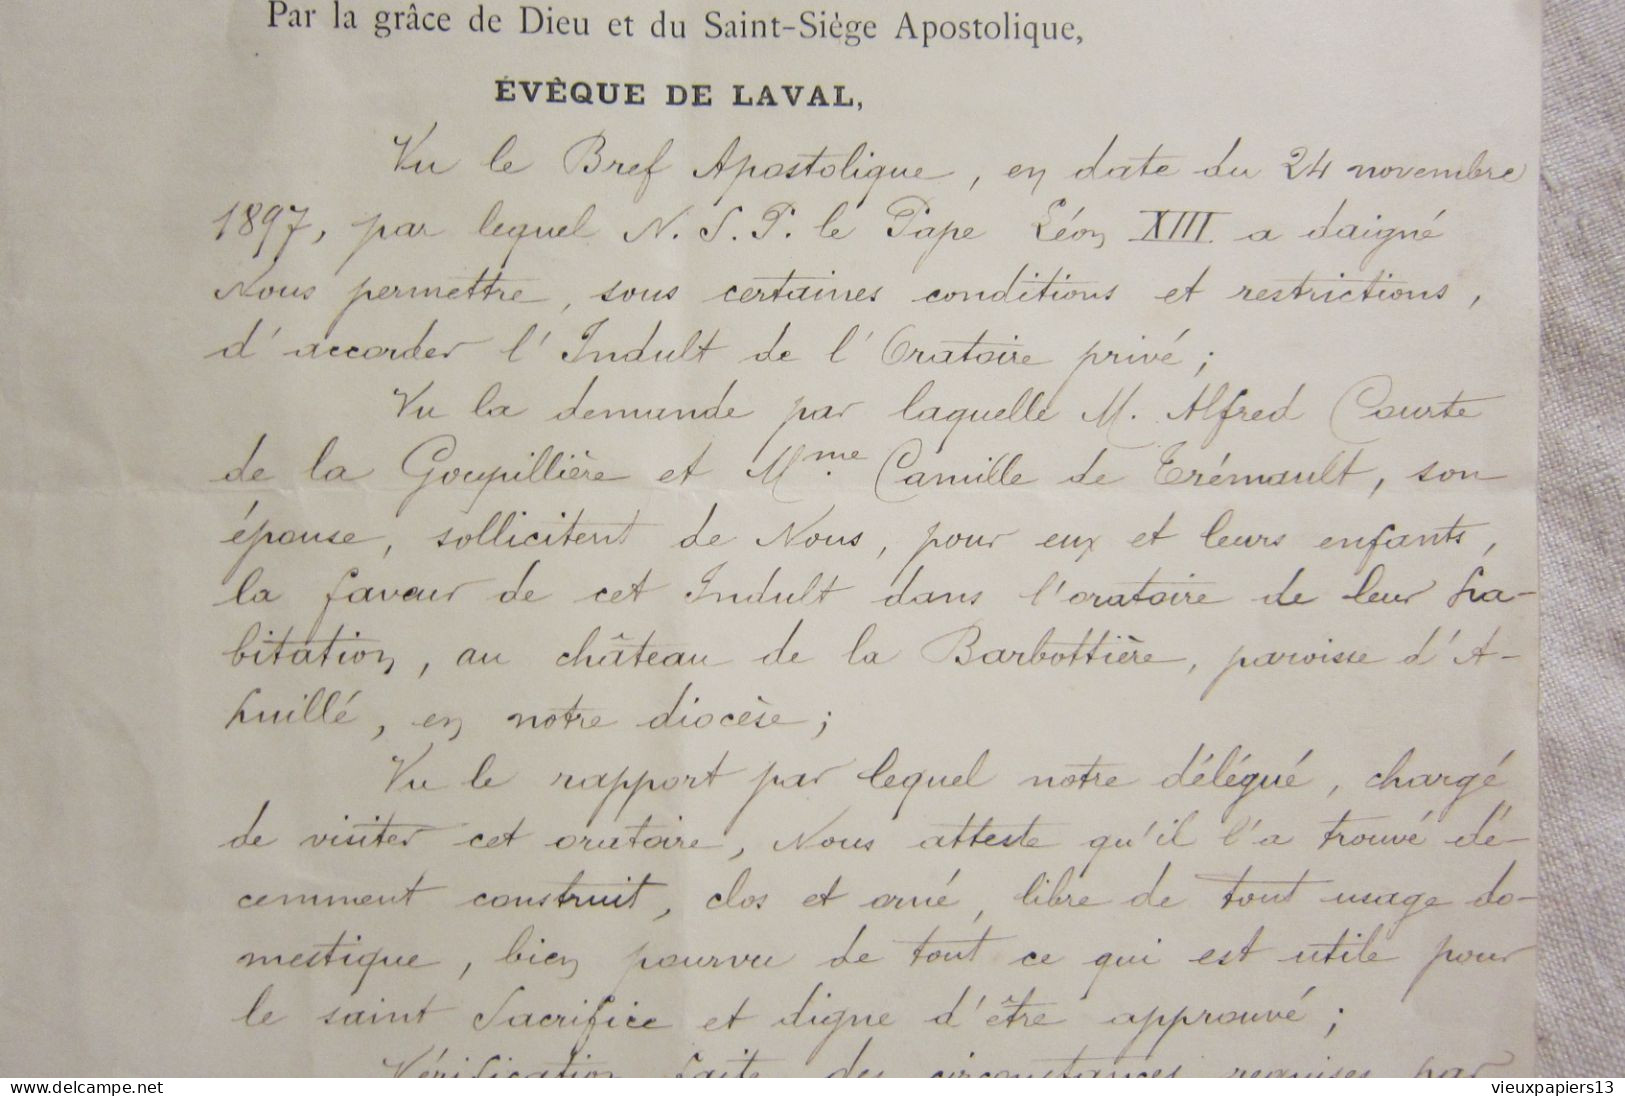 Par la grâce de Dieu et du Saint-Siège Apostolique,
ÉVÊQUE DE LAVAL,
Vu le Bref Apostolique, en date du 24 novembre
1897, par lequel N. S. P. le Pape Léon XIII a daigné
Nous permettre, sous certaines conditions et restrictions,
d'accorder l'Indult de l'Oratoire privé;
Vu la demande par laquelle M. Alfred Courte
de la Goupillière et Mme Camille de Trémault, son
épouse, sollicitent de Nous, pour eux et leurs enfants,
la faveur de cet Indult dans l'oratoire de leur ha-
bitation, au château de la Barbottière, paroisse d'A-
huillé, en notre diocèse;
Vu le rapport par lequel notre délégué, chargé
de visiter cet oratoire, Nous atteste qu'il l'a trouvé dé-
cemment construit, clos et orné, libre de tout usage do-
mestique, bien pourvu de tout ce qui est utile pour
le saint Sacrifice et digne d'être approuvé;
Vérification faite des circonstances requises par
www.delcampe.net
vieuxpapiers13